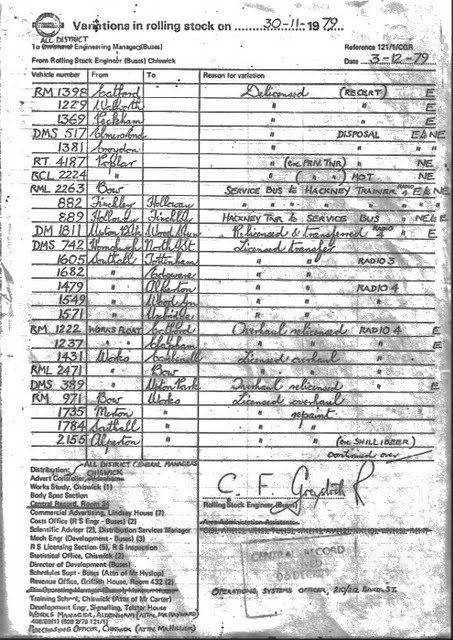 Variations in rolling stock on 30-11-1979
ALL DISTRICT
To Engineering Managers(Buses) Reference 121/1/CGR
From Rolling Stock Engineer (Buses) Chiswick Date 3-12-79
Vehicle number From To Reason for variation
RM 1398 Catford Delicensed (RECERT) E
1229 Walworth " " E
1369 Peckham " " E
DMS 517 Elmers End " DISPOSAL E & NE
1381 Croydon " "
RT 4187 Poplar " (ex PRIV. TNR) NE
RCL 2224 " " ( " " ) MOT NE
RML 2263 Bow SERVICE BUS to HACKNEY TRAINER E & NE
882 Finchley Holloway " " " " "
889 Holloway Finchley HACKNEY TNR to SERVICE BUS " NE & E
DM 1811 Upton Park Wood Green Relicensed & transferred RADIO 4 " E
DMS 742 Hornchurch North St. Licensed transfer
1605 Southall Tottenham " " RADIO 3
1682 " Edgware " "
1479 " Alperton " " RADIO 4
1549 " Wood Gn " "
1571 " Uxbridge " "
RM 1222 WORKS FLOAT Catford Overhaul relicensed RADIO 4 E
1237 " " Clapham " " E
1431 Works Camberwell Licensed overhaul
RML 2471 " Bow " "
DMS 389 " Upton Park Overhaul relicensed E
RM 971 Bow Works Licensed overhaul
1735 Merton " " repaint
1784 Southall " " "
2155 Alperton " " " (ex SHILLIBEER)
continued over
Distribution: ALL DISTRICT GENERAL MANAGERS
CHISWICK
Advert Controller,
Works Study, Chiswick (1)
Body Spec Section
Central Record, Room 24
Commercial Advertising, Lindsay House (7)
Costs Office (R S Engr - Buses) (2)
Scientific Adviser (2), Distribution Services Manager
Mech Engr (Development - Buses) (3)
R S Licensing Section (5), R S Inspection
Statistical Office, Chiswick (2)
Director of Development (Buses)
Schedules Supt - Buses (Attn of Mr Hyslop)
Revenue Office, Griffith House, Room 432 (2)
Training School, Chiswick (Attn of Mr Carter)
Development Engr, Signalling, Telstar House
PURCHASING OFFICER, CHISWICK
C F Graydock
Rolling Stock Engineer (Buses)
CENTRAL RECORD
OPERATING SYSTEMS OFFICER,